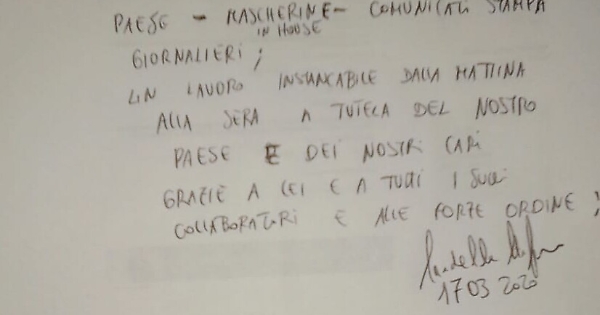 PAESE - MASCHERINE - COMUNICATI STAMPA
IN HOUSE
GIORNALIERI ;
UN LAVORO INSTANCABILE DALLA MATTINA
ALLA SERA A TUTELA DEL NOSTRO
PAESE E DEI NOSTRI CARI
GRAZIE A LEI E A TUTTI I SUOI
COLLABORATORI E ALLE FORZE ORDINE ;
17 03 2020